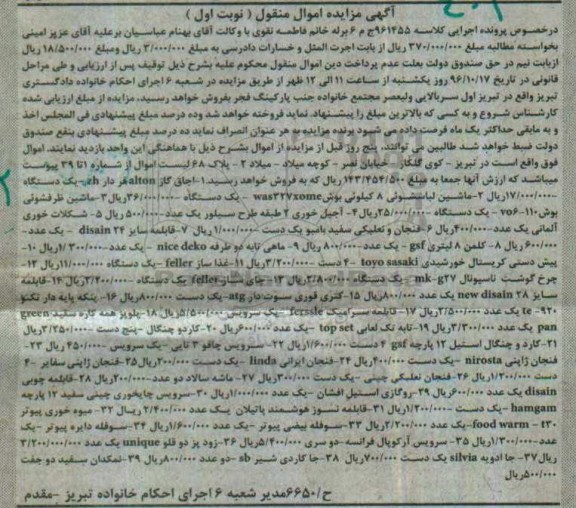 آگهی مزایده اموال منقول ( نوبت اول )
درخصوص پرونده اجرایی کلاسه ۹۶۱۴۵۵ج م ۶ برله خانم فاطمه تقوی با وکالت آقای بهنام عباسیان برعلیه آقای عزیز امینی
بخواسته مطالبه مبلغ ۳۷۰/۰۰۰/۰۰۰ ریال از بابت اجرت المثل و خسارات دادرسی به مبلغ ۳/۰۰۰/۰۰۰ ریال ومبلغ ۱۸/۵۰۰/۰۰۰ ریال
ازبابت نیم در حق صندوق دولت بعلت عدم پرداخت دین اموال منقول محکوم علیه بشرح ذیل توقیف پس از ارزیابی و طی مراحل
قانونی در تاریخ ۹۶/۱۰/۱۷ روز یکشنبه از ساعت ۱۱ الی ۱۲ ظهر از طریق مزایده در شعبه ۶ اجرای احکام خانواده دادگستری
تبریز واقع در تبریز اول سربالایی ولیعصر مجتمع خانواده جنب پارکینگ فجر بفروش خواهد رسید، مزایده از مبلغ ارزیابی شده
کارشناس شروع و به کسی که بالاترین مبلغ را پیشنهاد نماید فروخته خواهد شد وده درصد مبلغ پیشنهادی فی المجلس اخذ
و به مابقی حداکثر یک ماه فرصت داده می شود برنده مزایده به هر عنوان انصراف نماید ده درصد مبلغ پیشنهادی بنفع صندوق
دولت ضبط خواهد شد طالبین می توانند، پنج روز قبل از مزایده از اموال بشرح ذیل با هماهنگی این واحد بازدید نمایند. اموال
فوق واقع است در تبریز - کوی گلکار - خیابان نصر - کوچه میلاد - میلاد ۲ - پلاک ۶۸ لیست اموال از شماره ۱ تا ۳۹ پیوست
میباشد که ارزش آنها جمعا به مبلغ ۱۴۳/۴۵۴/۵۰۰ ریال که به فروش خواهد رسید.۱-اجاق گاز alton فر دار یک دستگاه
-۱۷/۰۰۰/۰۰۰ریال ۲-ماشین لباسشوئی ۸ کیلوئی بوش was۳۲۷xome یک دستگاه ۳۶/۰۰۰/۰۰۰ریال۳-ماشین ظرفشوئی
بوش۱۱۰-vo۶ - یک دستگاه -۲۵/۰۰۰/۰۰۰ریال۴- آجیل خوری ۲ طبقه طرح سیلور یک عدد-۵۰۰/۰۰۰ ریال ۵- شکلات خوری
آلمانی یک عدد-۴۰۰/۰۰۰ریال ۶-فنجان و نعلبکی سفید بامبو یک دست ۱/۰۰۰/۰۰۰ریال ۷-قابلمه سایز ۲۴ disain - یک عدد-
۶۰۰/۰۰۰ریال ۸- کلمن ۸ لیتری gsf - یک عدد ۸۰۰/۰۰۰ ریال ۹- ماهی تابه دو طرفه nice deko -یک عدد ۱/۳۰۰/۰۰۰ریال ۱۰-
پیش دستی کریستال خورشیدی toyo sasaki ۴ دست ۳/۲۰۰/۰۰۰ ریال ۱۱-غذا ساز feller - یک دستگاه ۱۱/۰۰۰/۰۰۰ریال ۱۲-
چرخ گوشت ناسیونال mk-g۲۷- یک دستگاه ۲/۸۰۰/۰۰۰ریال ۱۳- چای ساز feller یک دستگاه ۳/۴۰۰/۰۰۰ریال ۱۴-قابلمه
سایز ۲۸ new disain یک عدد ۸۰۰/۰۰۰ریال ۱۵-کتری قوری سوت دار atg-یک دست ۸۰۰/۰۰۰ریال ۱۶- پنکه پایه دار تکنو
۹۲۰- te یک عدد ۲/۵۰۰/۰۰۰ریال ۱۷- قابلمه سرامیک یک سرویس ۵/۵۰۰/۰۰۰ریال ۱۸-پلوپز همه کاره سفید green
pan یک عدد ۳/۳۰۰/۰۰۰ریال ۱۹-تابه تک لعابی top set -یک عدد ۶۰۰/۰۰۰ریال ۲۰-کاردو چنگال -پنج دست ۳/۲۵۰/۰۰۰ریال
۲۱-کارد و چنگال استیل ۱۲ پارچه gsf ۴ دست ۱/۶۰۰/۰۰۰ریال ۲۲-سرویس چاقو ۳ تایی -یک سرویس ۴۵۰/۰۰۰ ریال ۲۳-
فنجان ژاپنی nirosta -یک دست ۴۰۰/۰۰۰ریال ۲۴-فنجان ایرانی linda - یک دست ۲۰۰/۰۰۰ریال۲۵-فنجان ژاپنی سفایر -۴
دست ۱/۲۰۰/۰۰۰ریال ۲۶-فنجان نعلبکی چینی -یک دست ۳۰۰/۰۰۰ریال ۲۷- ماشه سالاد دو عدد-۲۰۰/۰۰۰ریال ۲۸-قابلمه چوبی
disain یک عدد ۶۰۰/۰۰۰ریال ۲۹-روگازی استیل افشان -یک عدد ۱/۰۰۰/۰۰۰ریال ۳۰-سرویس چایخوری چینی سفید ۱۲ پارچه
hamgam -یک دست ۱/۲۰۰/۰۰۰ریال ۳۱-قابلمه نسوز هوشمند پاتیلان یک عدد ۲/۴۰۰/۰۰۰ ریال ۳۲- میوه خوری پیوتر
food warm - t۳۰-یک عدد ۲/۲۰۰/۰۰۰ریال ۳۳-سوفله بیضی پیوتر -یک عدد ۱/۶۰۰/۰۰۰ریال ۳۴-سوفله دایره پیوتر -یک
عدد-۱/۳۰۰/۰۰۰ریال ۳۵- سرویس آرکوپال فرانسه-دو سری ۵/۴۰۰/۰۰۰ریال ۳۶-زود پز دو قلو unique یک عدد ۳/۲۰۰/۰۰۰
ریال۳۷- جا ادویه silvia یک دست ۷۰۰/۰۰۰ریال ۳۸-جا کاردی شیر sb -دو عدد ۸۰۰/۰۰۰ریال ۳۹-نمکدان سفید دو جفت
۵۰۰/۰۰۰ریال
ح/۶۶۵۰مدیر شعبه ۶ اجرای احکام خانواده تبریز -مقدم